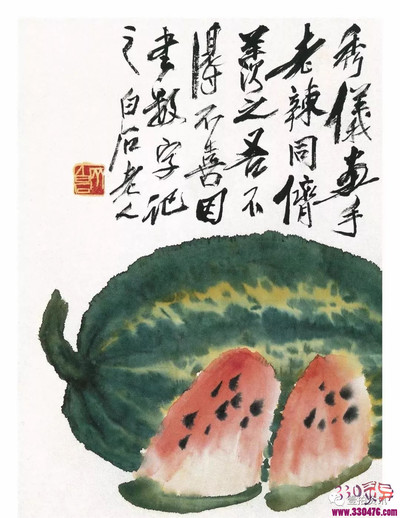 秀儀畫手
老辣同儕
羨之吾不
得不喜因
書數字記
之白石老人
www.330476.com